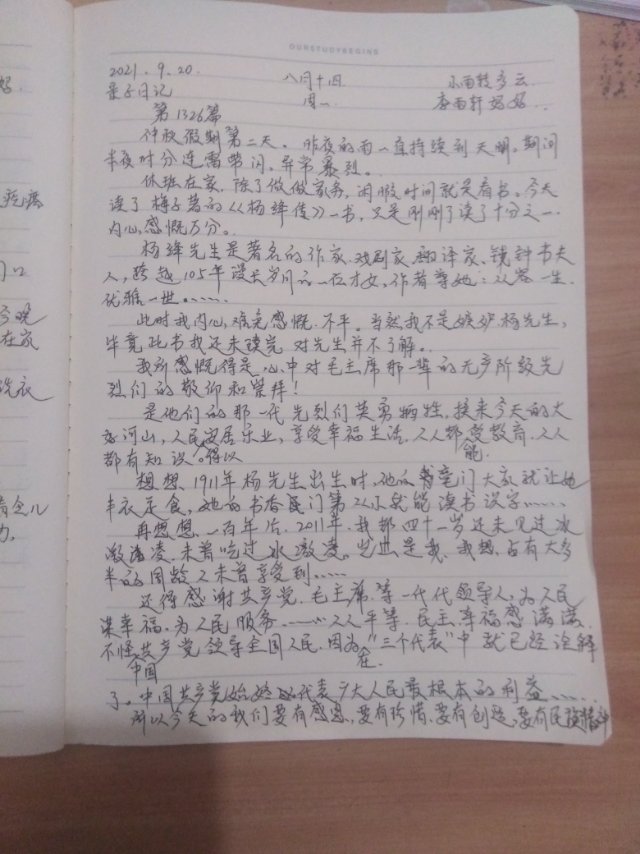 OURSTUDYBEGINS
2021.9.20. 八月十四 小雨转多云
亲子日记 周一 李雨轩妈妈
第1326篇
仲秋假期第二天。昨夜的雨一直持续到天明。期间
半夜时分连雷带闪。异常暴烈。
休班在家,除了做做家务,闲暇时间就是看书。今天
读了梅子著的《杨绛传》一书,只是刚刚了读了十分之一
内心感慨万分。
杨绛先生是著名的作家、戏剧家、翻译家、钱钟书夫
人,跨越105年漫长岁月的一位才女,作者尊她:从容一生
优雅一世。……
此时我内心难免感慨不平。当然我不是嫉妒杨先生,
毕竟此书我还未读完 对先生并不了解。
我所感慨得是心中对毛主席那一辈的无产阶级先
烈们的敬仰和崇拜!
是他们的那一代先烈们英勇牺牲,换来今天的大
好河山,人民安居乐业,享受幸福生活,人人都能受教育,人人
都有知识得以
想想1911年杨先生出生时,她的 门大家就让她
丰衣足食,她的书香门第从小就能读书识字……
再想想一百年后,2011年,我都四十一岁还未见过冰
激凌,未曾吃过冰激凌。岂止是我,我想占有大多
半的同龄人未曾享受到……
还得感谢共产党、毛主席等一代代领导人,为人民
谋幸福,为人民服务……人人平等、民主、幸福感满满
不怪中国共产党领导全国人民,因为在“三个代表”中就已经诠释
了。中国共产党始终代表广大人民最根本的利益……
所以今天的我们要有感恩,要有珍惜,要有创造,要有民族精神
好
门口
今晚
在家
洗衣
力,